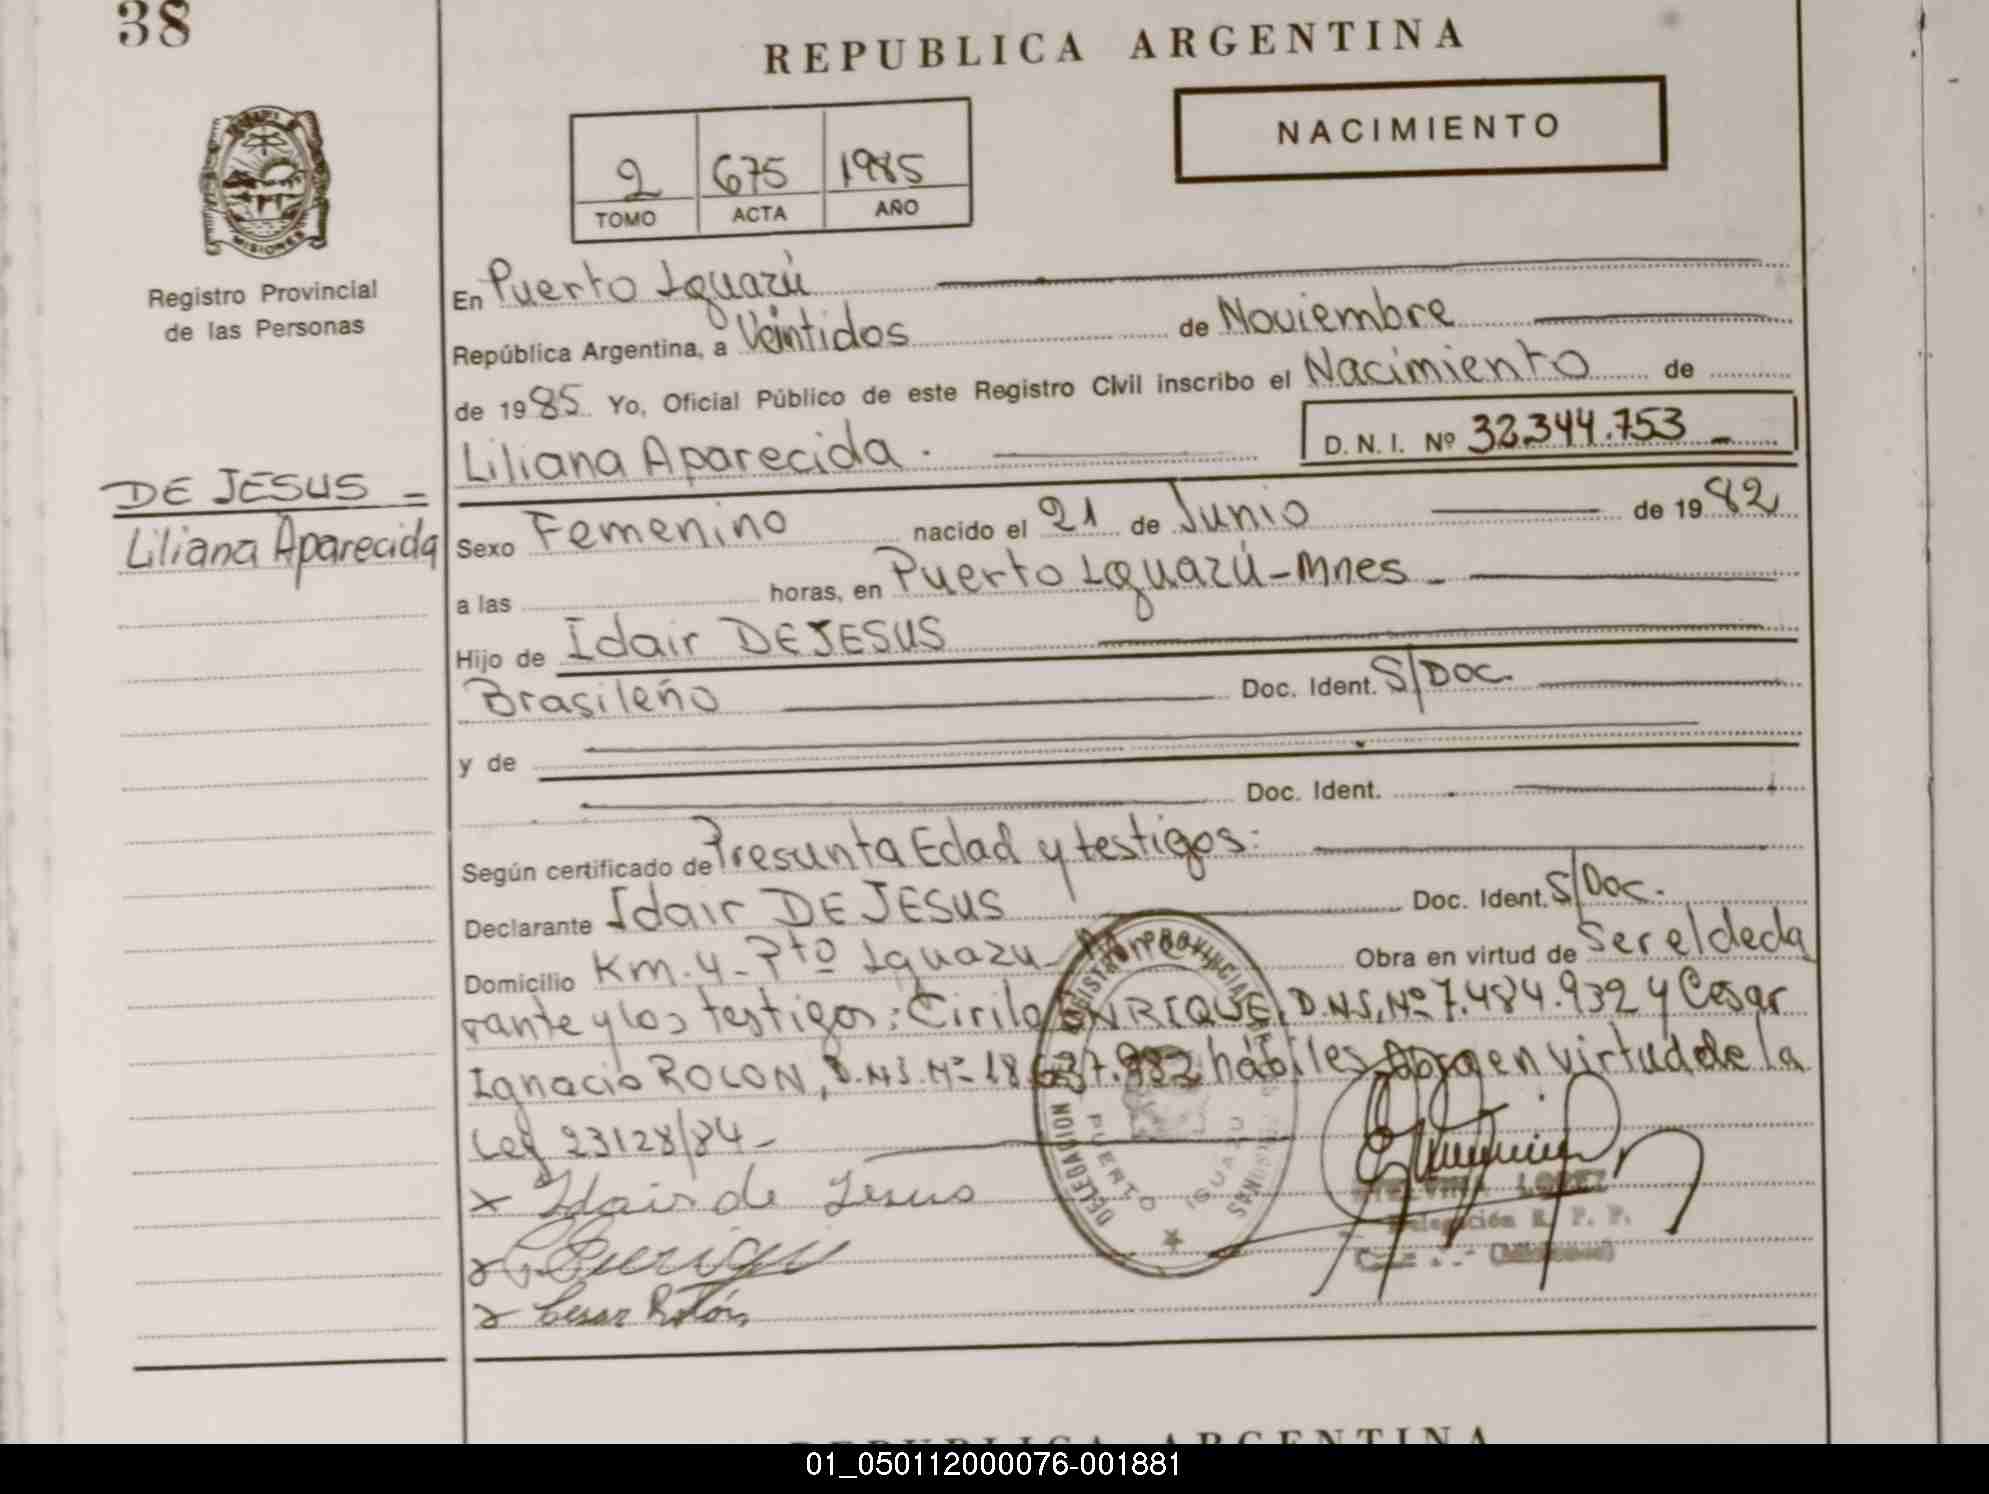 38
REPUBLICA ARGENTINA
NACIMIENTO
2 675 1985
TOMO ACTA AÑO
MISIONES
Registro Provincial
de las Personas
DE JESUS =
Liliana Aparecida
En Puerto Iguazú
República Argentina, a Veintidos de Noviembre
de 1985. Yo, Oficial Público de este Registro Civil inscribo el Nacimiento de
Liliana Aparecida. D.N.I. Nº 32.344.753
Sexo Femenino nacido el 21 de Junio de 1982
a las horas, en Puerto Iguazú-Mnes
Hijo de Idair DE JESUS
Brasileño Doc. Ident. S/Doc.
y de
Doc. Ident.
Según certificado de Presunta Edad y testigos:
Declarante Idair DE JESUS Doc. Ident. S/Doc.
Domicilio Km. 4 - Pto Iguazu - Obra en virtud de Ser el decla
rante y los testigos: Cirilo ENRIQUE, D.N.I. Nº 7.484.932 y Cesar
Ignacio ROLON, D.N.I. Nº 18. hábiles, obra en virtud de la
Ley 23128/84-
x Idair de Jesus
Cesar Rolón
REGISTRO PROVINCIAL
DELEGACION
PUERTO IGUAZU
MISIONES
LOPEZ
Delegación R. P. P.
(Misiones)
REPUBLICA ARGENTINA
01_050112000076-001881